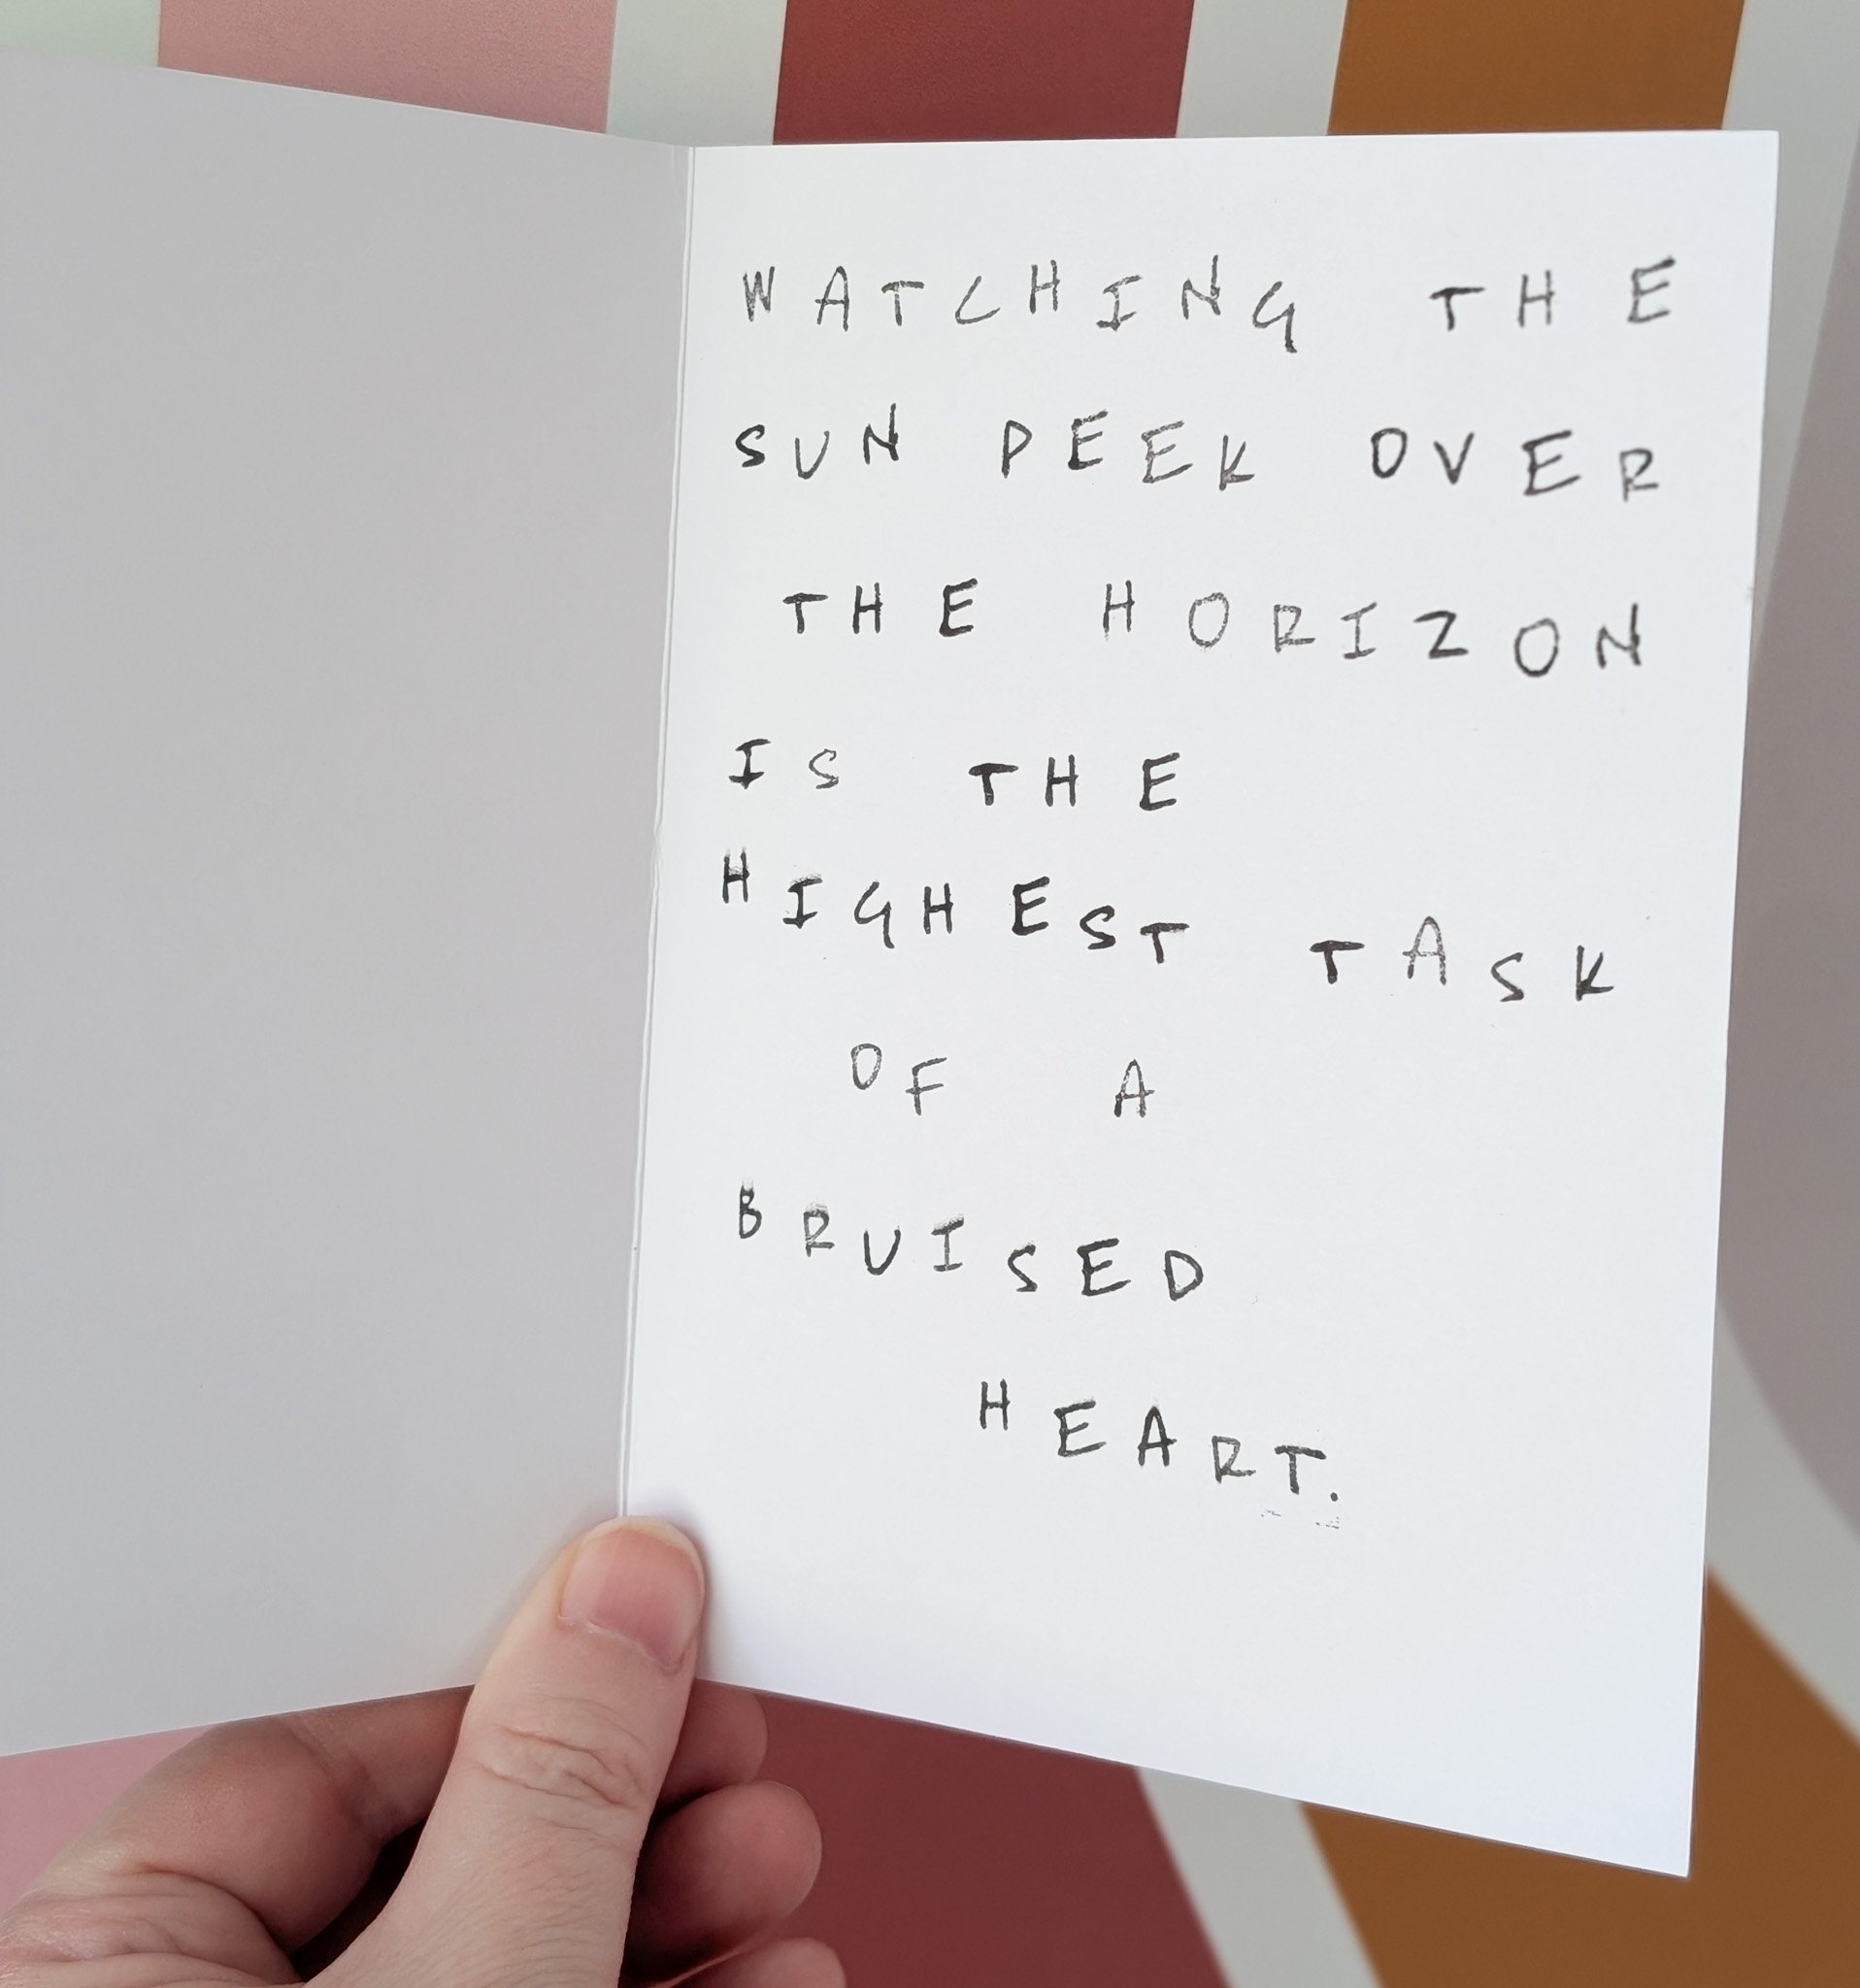 WATCHING THE
SUN PEEK OVER
THE HORIZON
IS THE
HIGHEST TASK
OF A
BRUISED
HEART.